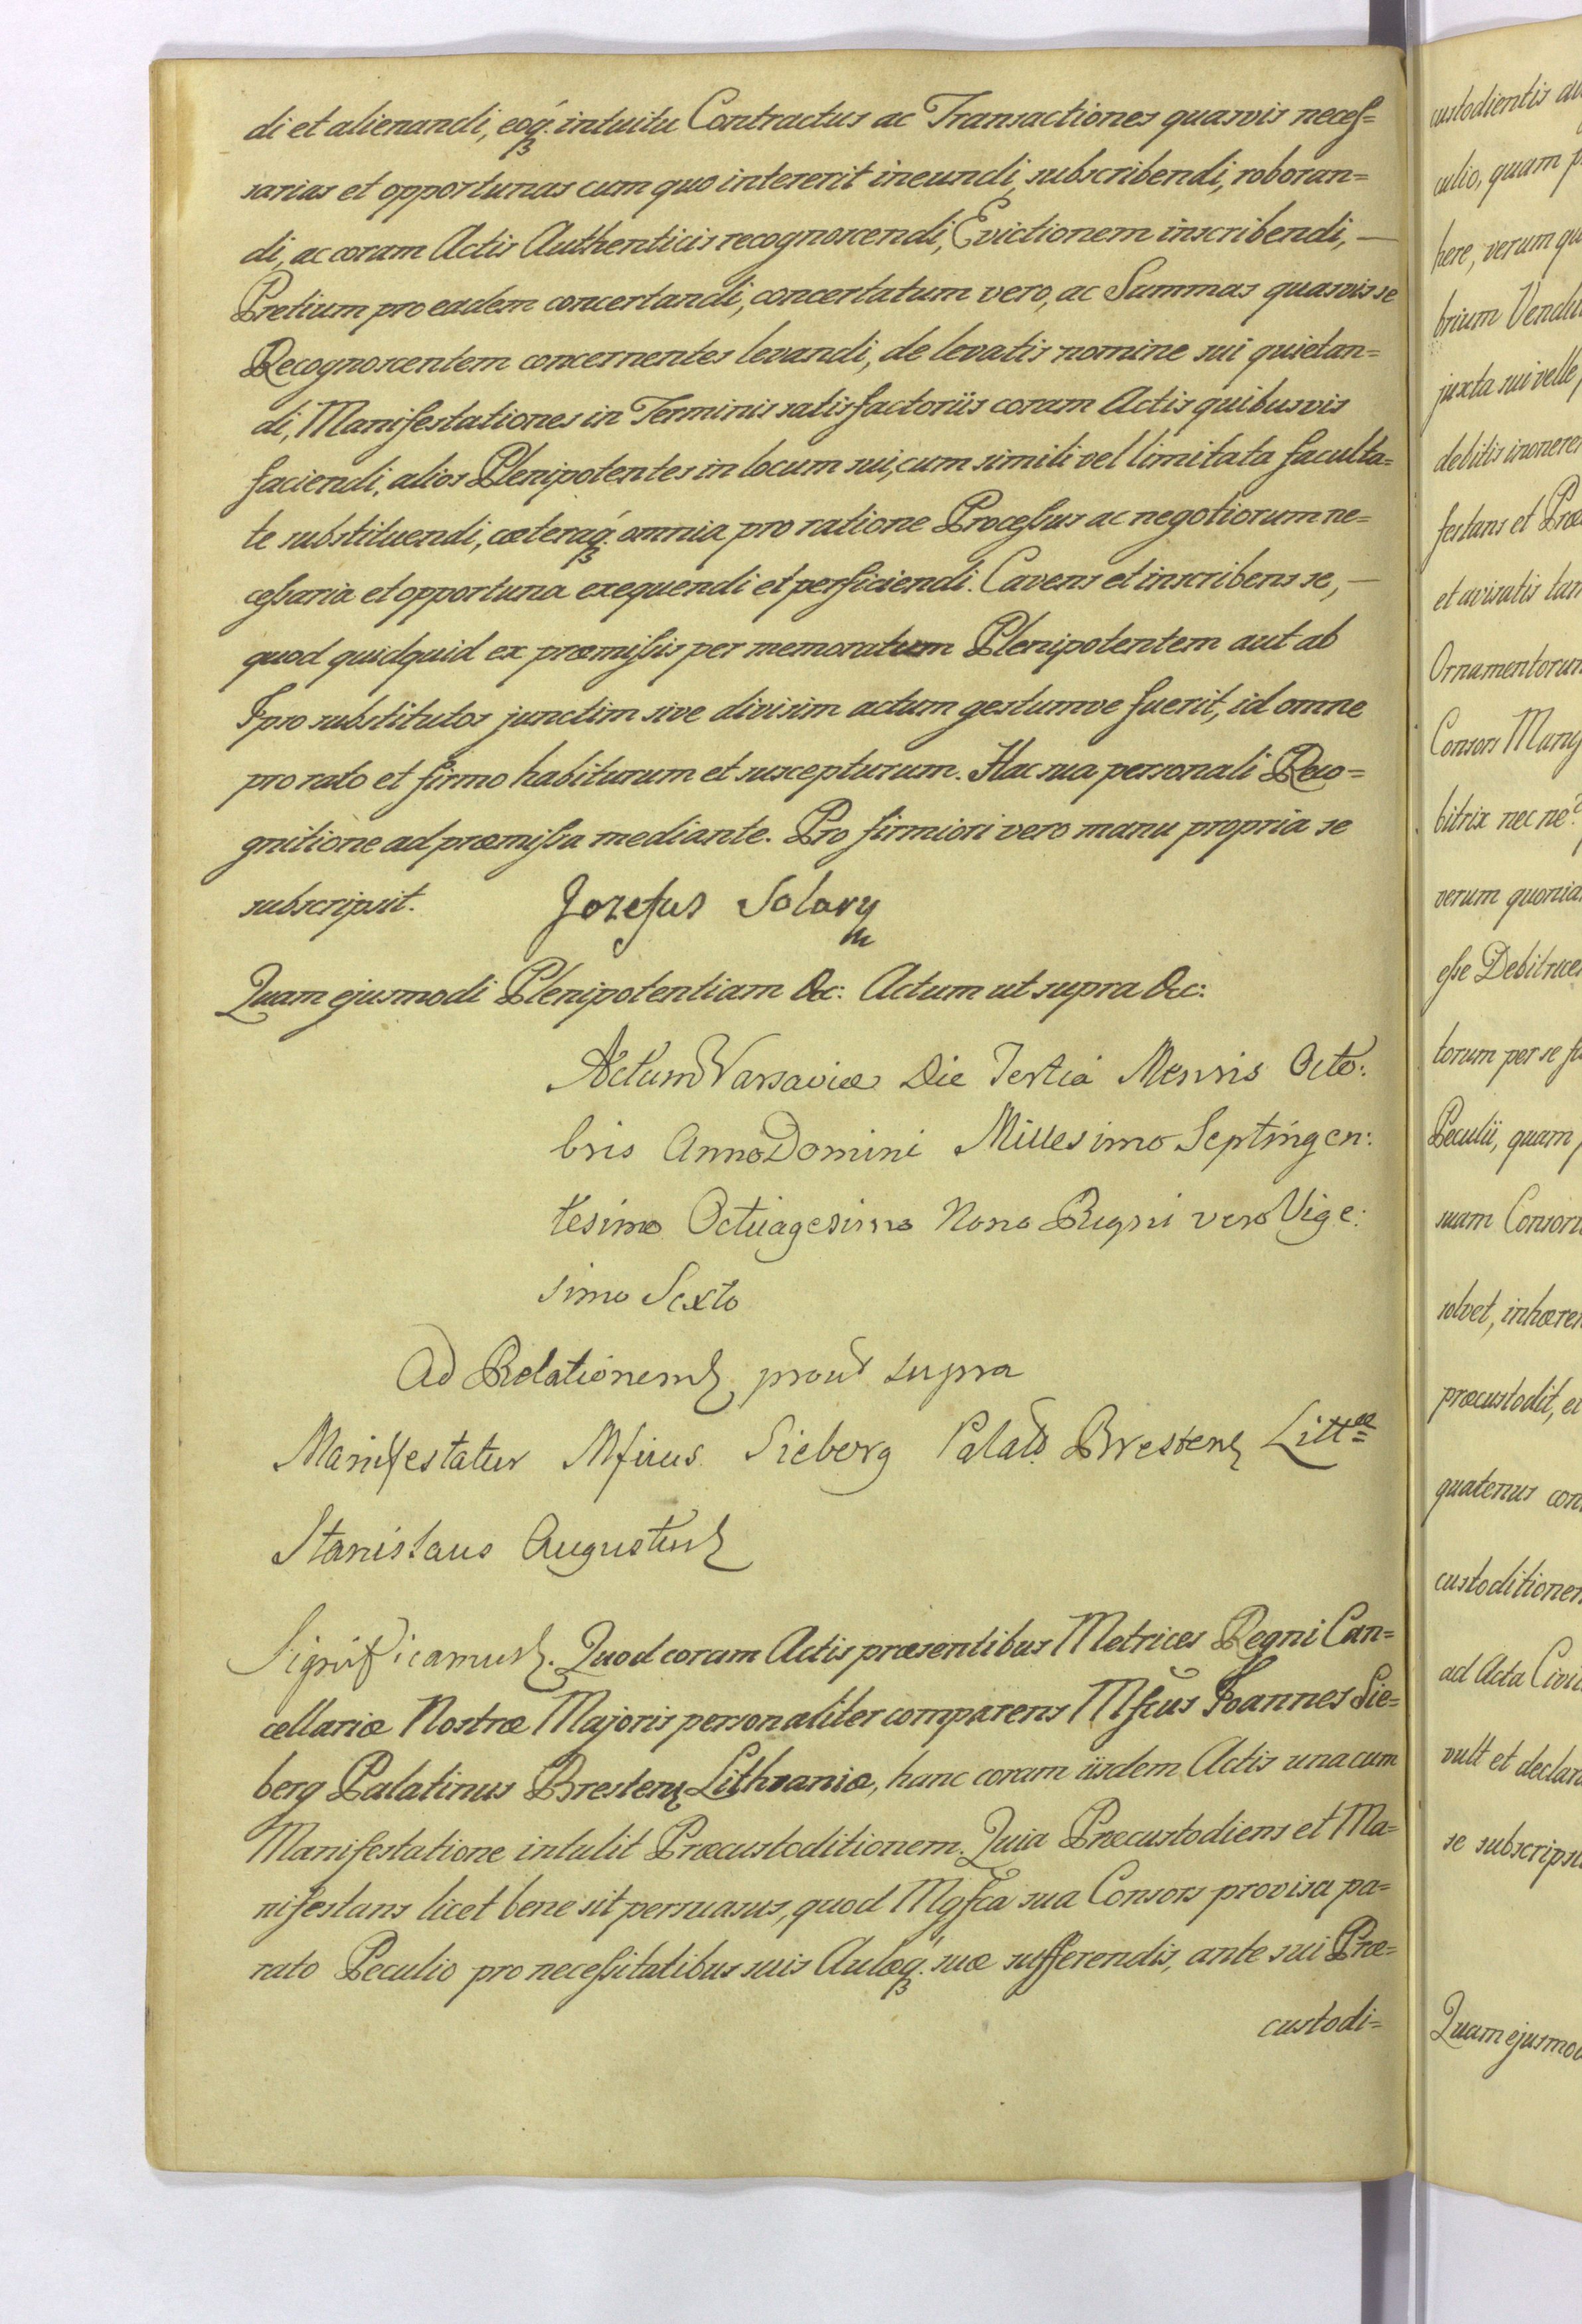 di et alienandi, eoq́ꝫ intuitu Contractus ac Transactiones quasvis neces=
sarias et opportunas cum quo intererit ineundi, subscribendi, roboran=
di, ac coram Actis Authenticis recognoscendi, Evictionem inscribendi, —
Pretium pro eadem concertandi, concertatum vero, ac Summas quasvis se
Recognoscentem concernentes levandi, de levatis nomine sui quietan=
di, Manifestationes in Terminis satisfactoriis coram Actis quibusvis
faciendi, alios Plenipotentes in locum sui, cum simili vel limitata faculta=
te substituendi, cæteraq́ꝫ omnia pro ratione Processus ac negotiorum ne=
cessaria et opportuna exequendi et perficiendi. Cavens et inscribens se, —
quod quidquid ex præmissis per memoratum Plenipotentem aut ab
Ipso substitutos junctim sive divisim actum gestumve fuerit, id omne
pro rato et firmo habiturum et suscepturum. Hac sua personali Reco=
gnitione ad præmissa mediante. Pro firmiori vero manu propria se
subscripsit. Jozefus Solary
m
Quam ejusmodi Plenipotentiam &c: Actum ut supra &c:
Actum Varsaviæ Die Tertia Mensis Octo:
bris Anno Domini Millesimo Septingen:
tesimo Octuagesimo Nono Regni vero Vige:
simo Sexto
Ad Relationem prout supra
Manifestatur Mficus Sieberg Palat. Bresten Littæ
Stanislaus Augustus
Significamus. Quod coram Actis præsentibus Metrices Regni Can=
cellariæ Nostræ Majoris personaliter comparens Mfcus Joannes Sie=
berg Palatinus Bresten Lithvaniæ, hanc coram iisdem Actis una cum
Manifestatione intulit Præcustoditionem. Quia Præcustodiens et Ma=
nifestans licet bene sit persuasus, quod Mgfca sua Consors provisa pa=
rato Peculio pro necessitatibus suis Aulæq́ꝫ suæ sufferendis, ante sui Præ=
custodi=
custodientis
culio, quam
here, verum
brium
juxta sui velle
debitis
festans et
et avisatis
Ornamentorum
Consors
bitrix nec ne?
verum
esse
torum per se
Peculii, quam
suam
solvet,
præcustodit, et
quatenus
custoditionem
ad Acta
vult et
se
Quam